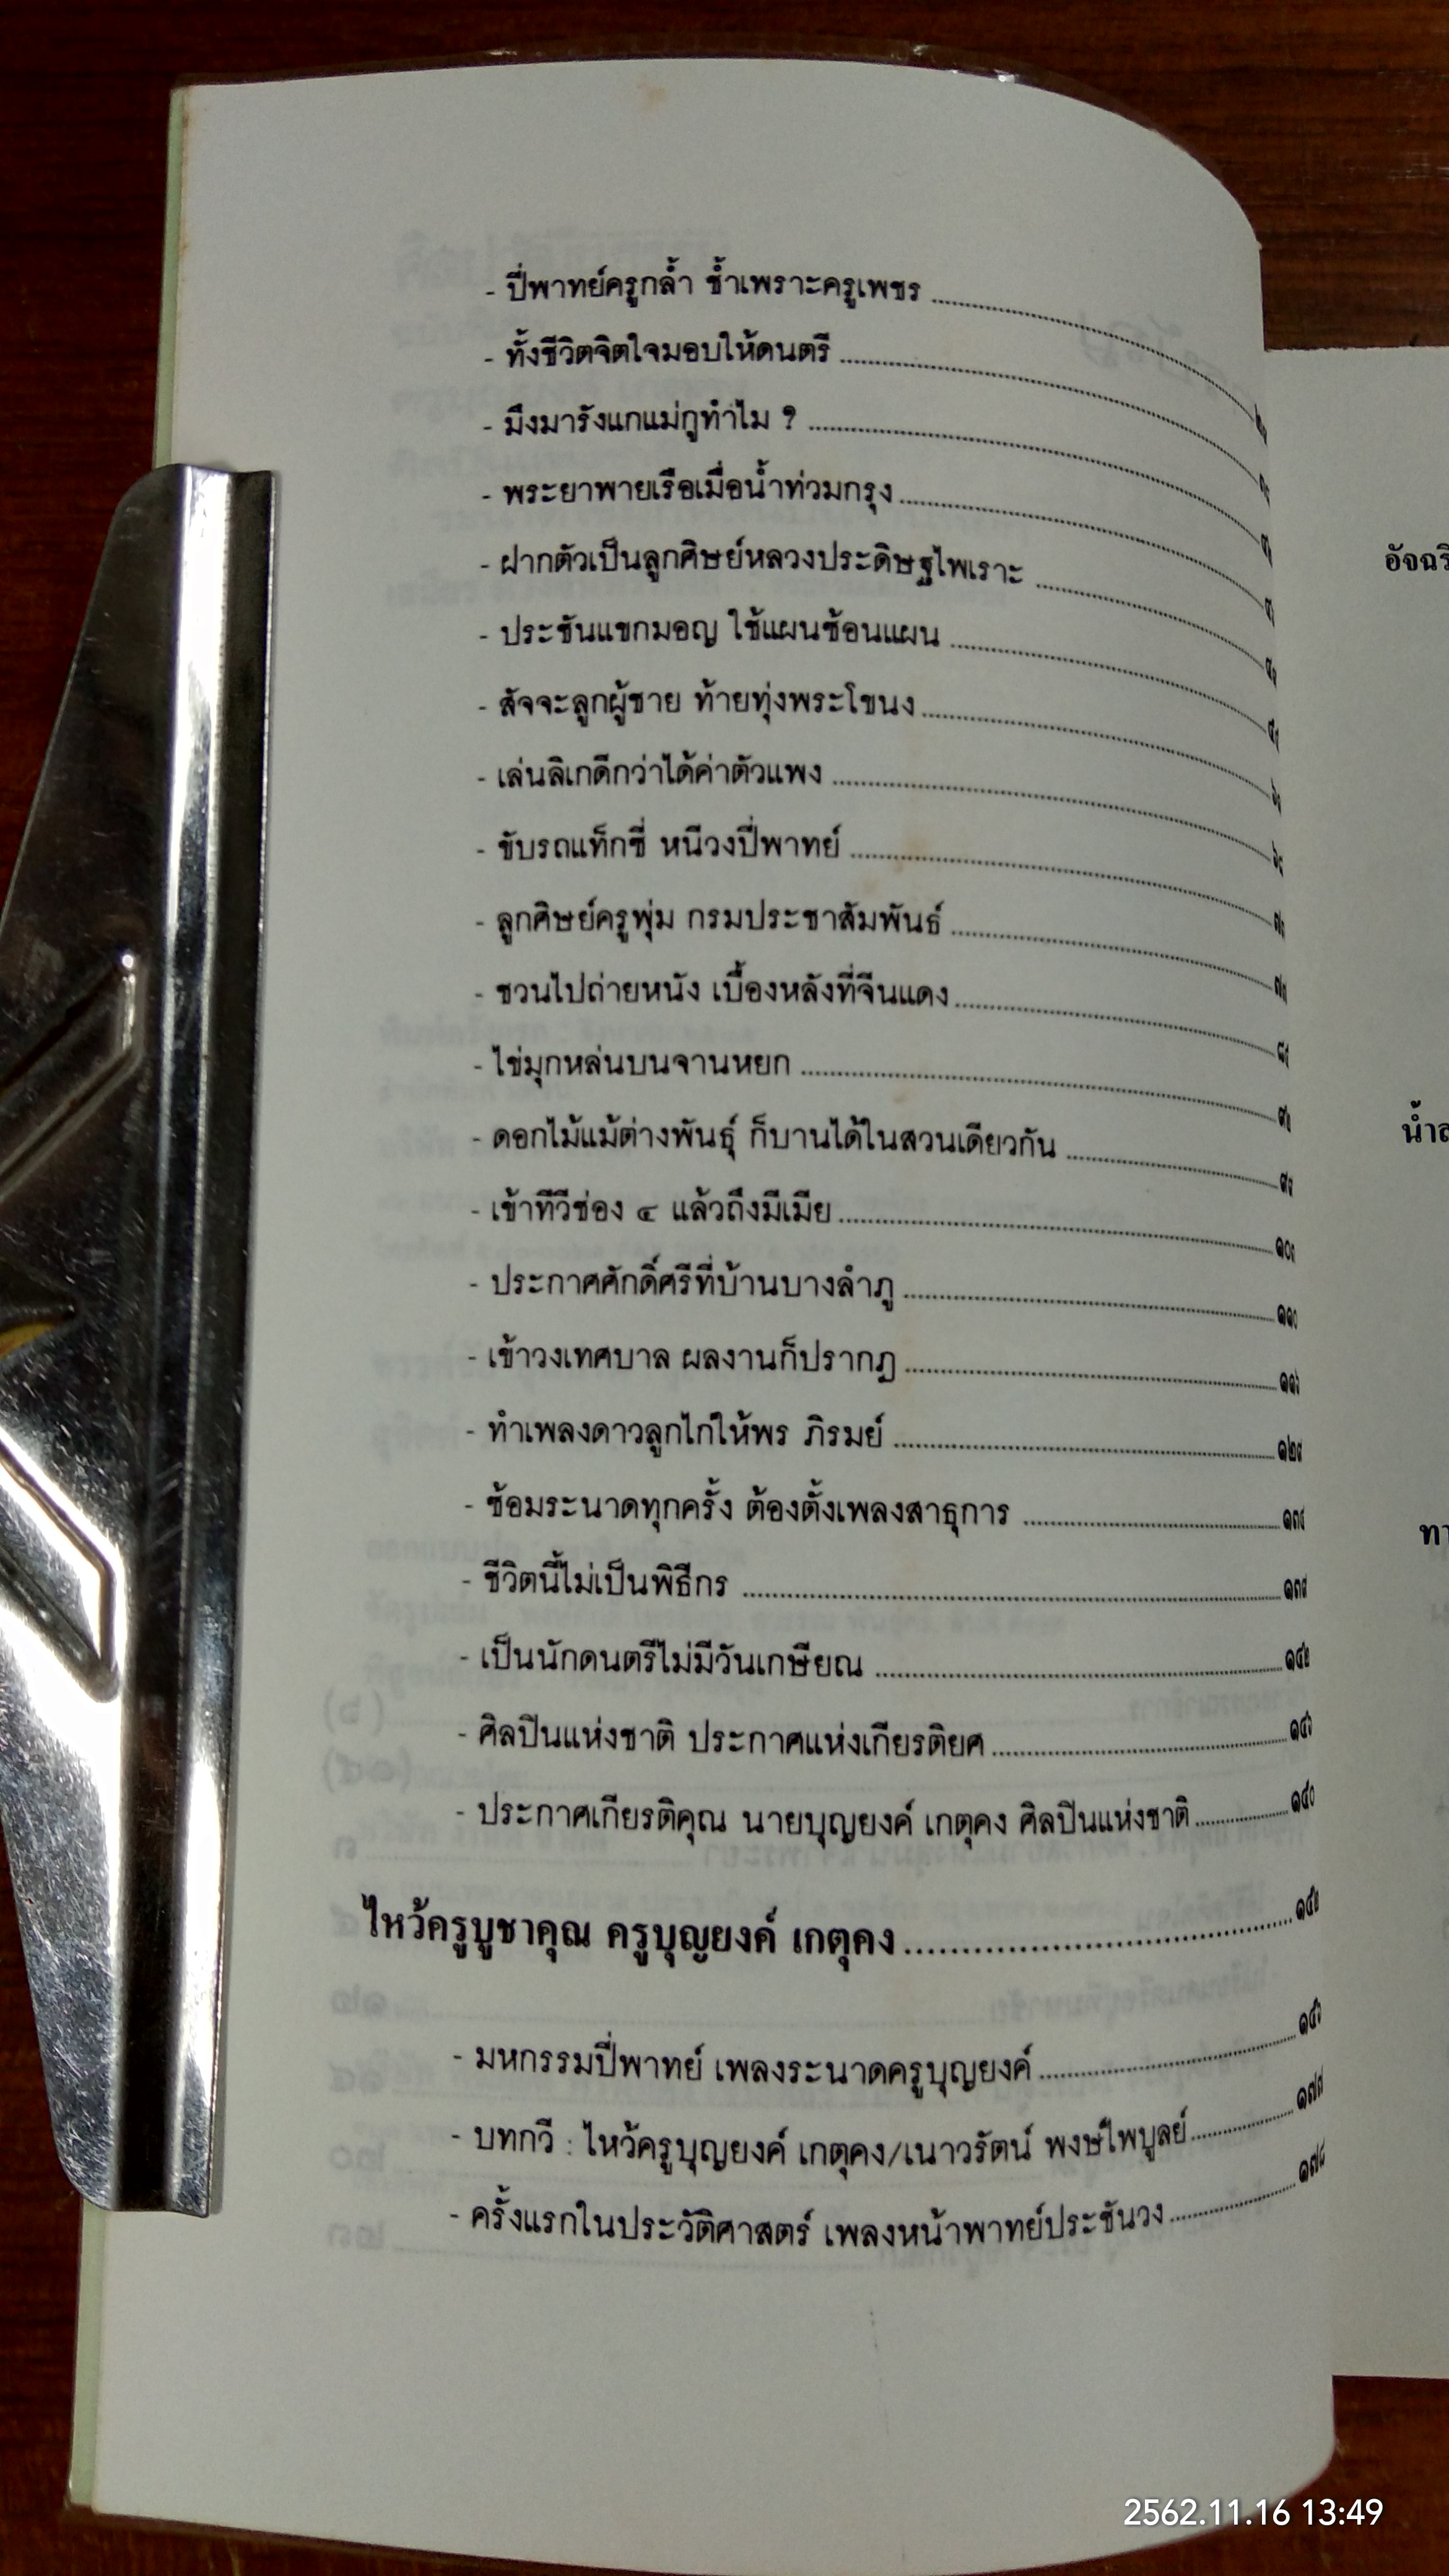 - ปี่พาทย์ครูกล้ำ ช้ำเพราะครูเพชร
- ทั้งชีวิตจิตใจมอบให้ดนตรี
- มึงมารังแกแม่กูทำไม ?
- พระยาพายเรือเมื่อน้ำท่วมกรุง
- ฝากตัวเป็นลูกศิษย์หลวงประดิษฐไพเราะ
- ประชันแขกมอญ ใช้แผนซ้อนแผน
- สัจจะลูกผู้ชาย ท้ายทุ่งพระโขนง
- เล่นลิเกดีกว่าได้ค่าตัวแพง
- ขับรถแท็กซี่ หนีวงปี่พาทย์
- ลูกศิษย์ครูพุ่ม กรมประชาสัมพันธ์
- ชวนไปถ่ายหนัง เบื้องหลังที่จีนแดง
- ไข่มุกหล่นบนจานหยก
- ดอกไม้แม้ต่างพันธุ์ ก็บานได้ในสวนเดียวกัน
- เข้าทีวีช่อง ๔ แล้วถึงมีเมีย
- ประกาศศักดิ์ศรีที่บ้านบางลำภู
- เข้าวงเทศบาล ผลงานก็ปรากฏ
- ทำเพลงดาวลูกไก่ให้พร ภิรมย์
- ซ้อมระนาดทุกครั้ง ต้องตั้งเพลงสาธุการ
- ชีวิตนี้ไม่เป็นพิธีกร
- เป็นนักดนตรีไม่มีวันเกษียณ
- ศิลปินแห่งชาติ ประกาศแห่งเกียรติยศ
- ประกาศเกียรติคุณ นายบุญยงค์ เกตุคง ศิลปินแห่งชาติ
ไหว้ครูบูชาคุณ ครูบุญยงค์ เกตุคง
- มหกรรมปี่พาทย์ เพลงระนาดครูบุญยงค์
- บทกวี : ไหว้ครูบุญยงค์ เกตุคง/เนาวรัตน์ พงษ์ไพบูลย์
- ครั้งแรกในประวัติศาสตร์ เพลงหน้าพาทย์ประชันวง
2562.11.16 13:49